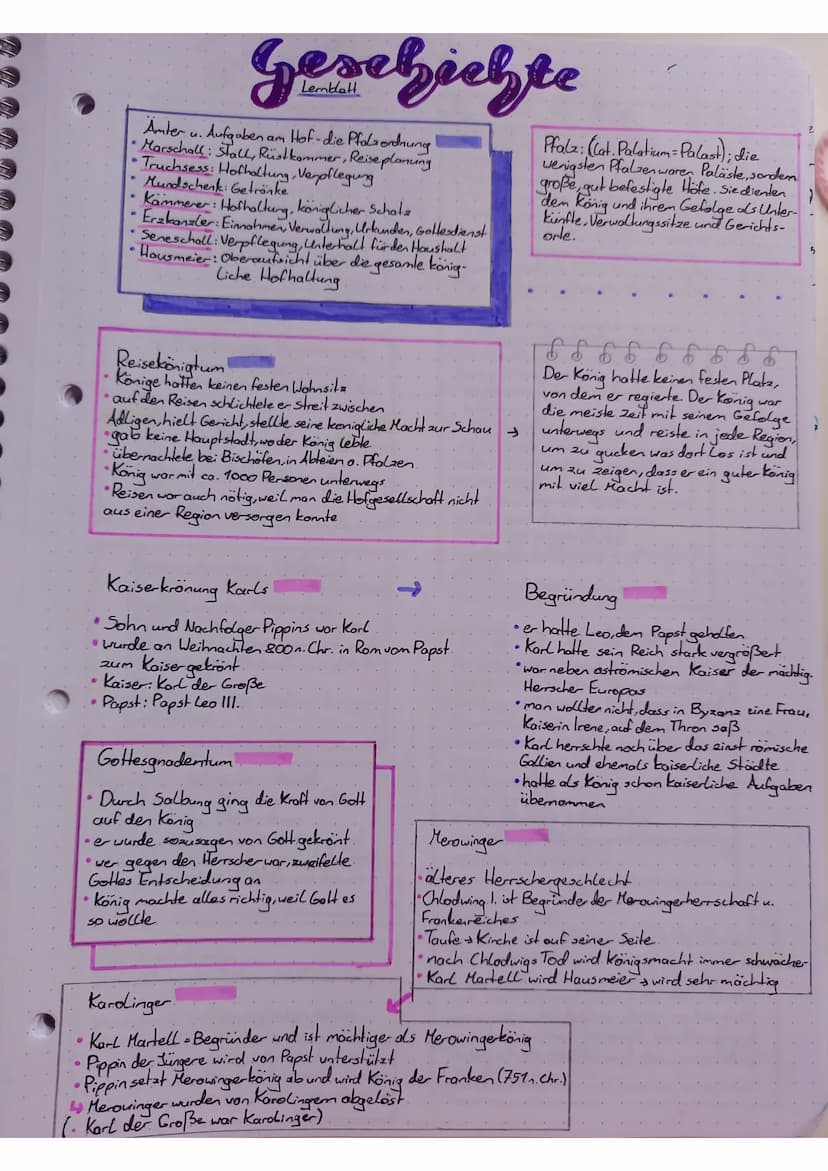 Geschichte
Lernblatt
Ämter u. Aufgaben am Hof - die Pfalzordnung
• Marschall: Stall, Rüstkammer, Reiseplanung
• Truchsess: Hofhaltung, Verpflegung
• Mundschenk: Getränke
• Kämmerer: Hofhaltung, königlicher Schatz
• Erzkanzler: Einnahmen, Verwaltung, Urkunden, Gottesdienst
• Seneschall: Verpflegung, Unterhalt für den Haushalt
• Hausmeier: Oberaufsicht über die gesamte könig-
liche Hofhaltung
Pfalz: (lat. Palatium = Palast); die
wenigsten Pfalzen waren Paläste, sondern
große, gut befestigte Höfe. Sie dienten
dem König und ihrem Gefolge als Unter-
künfte, Verwaltungssitze und Gerichts-
orte.
Reisekönigtum
• Könige hatten keinen festen Wohnsitz
• auf den Reisen schlichtete er Streit zwischen
Adligen, hielt Gericht, stellte seine koenigliche Macht zur Schau →
• gab keine Hauptstadt, wo der König lebte
• übernachtete bei Bischöfen, in Abteien o. Pfalzen
• König war mit ca. 1000 Personen unterwegs
• Reisen war auch nötig, weil man die Hofgesellschaft nicht
aus einer Region versorgen konnte
Der König hatte keinen festen Platz,
von dem er regierte. Der König war
die meiste Zeit mit seinem Gefolge
unterwegs und reiste in jede Region,
um zu gucken was dort los ist und
um zu zeigen, dass er ein guter König
mit viel Macht ist.
Kaiserkrönung Karls →
• Sohn und Nachfolger Pippins war Karl
• wurde an Weihnachten 800 n. Chr. in Rom vom Papst
zum Kaiser gekrönt
• Kaiser: Karl der Große
• Papst: Papst Leo III.
Begründung
• er hatte Leo, dem Papst geholfen
• Karl hatte sein Reich stark vergrößert
• war neben oströmischen Kaiser der mächtig.
Herrscher Europas
• man wollte nicht, dass in Byzanz eine Frau,
Kaiserin Irene, auf dem Thron saß
• Karl herrschte noch über das einst römische
Gallien und ehemals kaiserliche Städte
• hatte als König schon kaiserliche Aufgaben
übernommen
Gottesgnadentum
• Durch Salbung ging die Kraft von Gott
auf den König
• er wurde sozusagen von Gott gekrönt
• wer gegen den Herrscher war, zweifelte
Gottes Entscheidung an
• König machte alles richtig, weil Gott es
so wollte
Merowinger
• älteres Herrschergeschlecht
• Chlodwing I. ist Begründer der Merowingerherrschaft u.
Frankenreiches
• Taufe → Kirche ist auf seiner Seite
• nach Chlodwigs Tod wird Königsmacht immer schwächer
• Karl Martell wird Hausmeier → wird sehr mächtig
Karolinger
• Karl Martell = Begründer und ist mächtiger als Merowingerkönig
• Pippin der Jüngere wird von Papst unterstützt
• Pippin setzt Merowingerkönig ab und wird König der Franken (751 n. Chr.)
↳ Merowinger wurden von Karolingern abgelöst
(• Karl der Große war Karolinger)